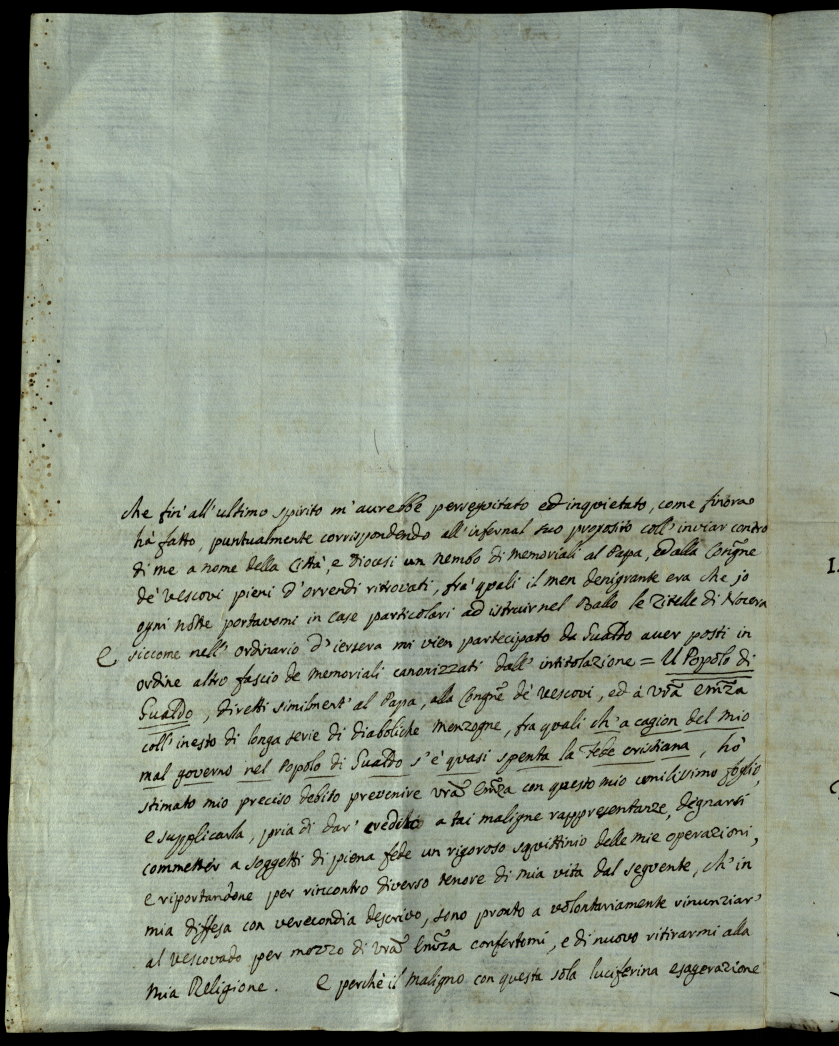 che fin' all' ultimo spirito m' aurebbe perseguitato ed inquietato, come finora
hà fatto, puntualmente corrispondendo all' infernal suo proposito coll' inviar contro
di me a nome della Città, e Diocesi un nembo di memoriali al Papa, ed alla Congne
de' Vescovi pieni d' orrendi ritrovati, frà quali il men denigrante era che jo
ogni notte portavomi in case particolari ad istruir nel Ballo le Zitelle di Nocera
E siccome nell' ordinario d' iersera mi vien partecipato da Gualdo aver posti in
ordine altro fascio de memoriali canonizzati dall' intitolazione = Il Popolo di
Gualdo, diretti similment' al Papa, alla Congne de' Vescovi, ed à Vra Emza
coll' inesto di longa serie di diaboliche menzogne, fra quali ch' a cagion del mio
mal governo nel Popolo di Gualdo s' è quasi spenta la Fede cristiana, hò
stimato mio preciso debito prevenire Vra Emza con questo mio umilissimo foglio
e supplicarla, pria di dar' credito a tai maligne rappresentanze, degnarsi
commetter a soggetti di piena fede un rigoroso squittinio delle mie operazioni,
e riportandone per rincontro diverso tenore di mia vita dal seguente, ch' in
mia diffesa con verecondia descrivo, sono pronto a volontariamente rinunziar'
al Vescovado per mezzo di Vra Emza confertomi, e di nuovo ritirarmi alla
mia Religione. E perchè il maligno con questa sola luciferina esagerazione